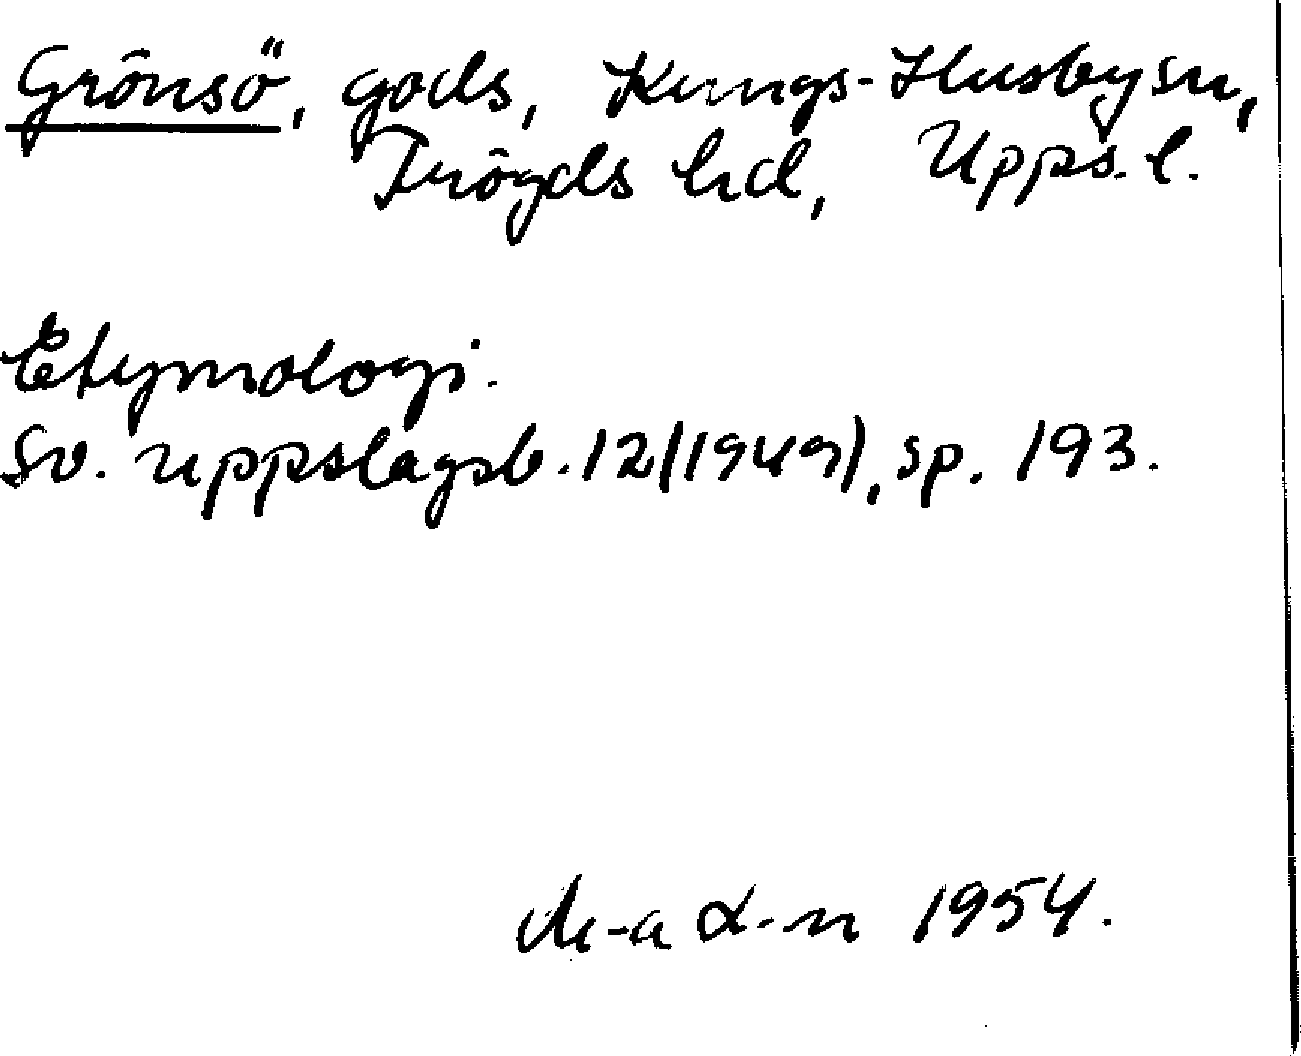 Grönsö, gods, Kungs-Husby sn,
Trögds hd, Upps. l.
Etymologi.
Sv. uppslagsb. 12 (1949), sp. 193.
1954.